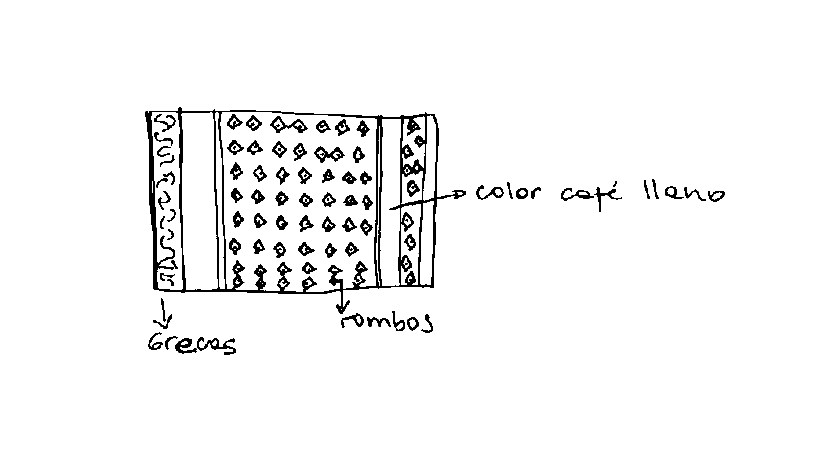 color café llano
rombos
Grecas